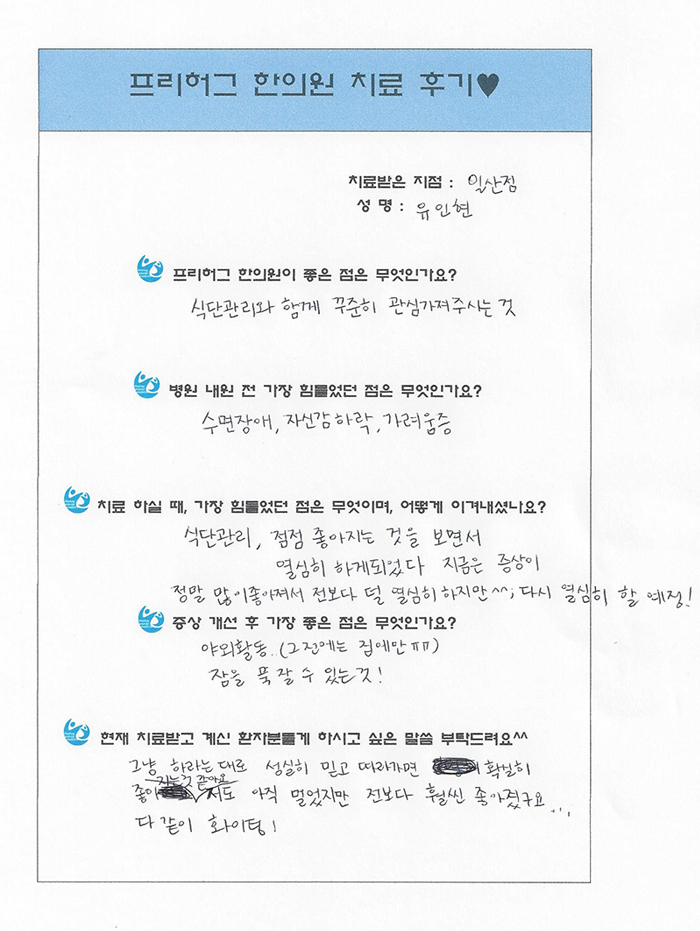 프리허그 한의원 치료 후기♥
치료받은 지점 : 일산점
성 명 : 유인현
프리허그 한의원이 좋은 점은 무엇인가요?
식단관리와 함께 꾸준히 관심가져주시는 것
병원 내원 전 가장 힘들었던 점은 무엇인가요?
수면장애, 자신감하락, 가려움증
치료 하실 때, 가장 힘들었던 점은 무엇이며, 어떻게 이겨내셨나요?
식단관리, 점점 좋아지는 것을 보면서
열심히 하게되었다 지금은 증상이
정말 많이좋아져서 전보다 덜 열심히하지만^^; 다시 열심히 할 예정!
증상 개선 후 가장 좋은 점은 무엇인가요?
야외활동..(그전에는 집에만ㅠㅠ)
잠을 푹잘 수 있는것!
현재 치료받고 계신 환자분들게 하시고 싶은 말씀 부탁드려요^^
그냥 하라는 대로 성실히 믿고 따라가면 확실히
지는것 같아요
좋아 저도 아직 멀었지만 전보다 훨씬 좋아졌구요...
다같이 화이팅!